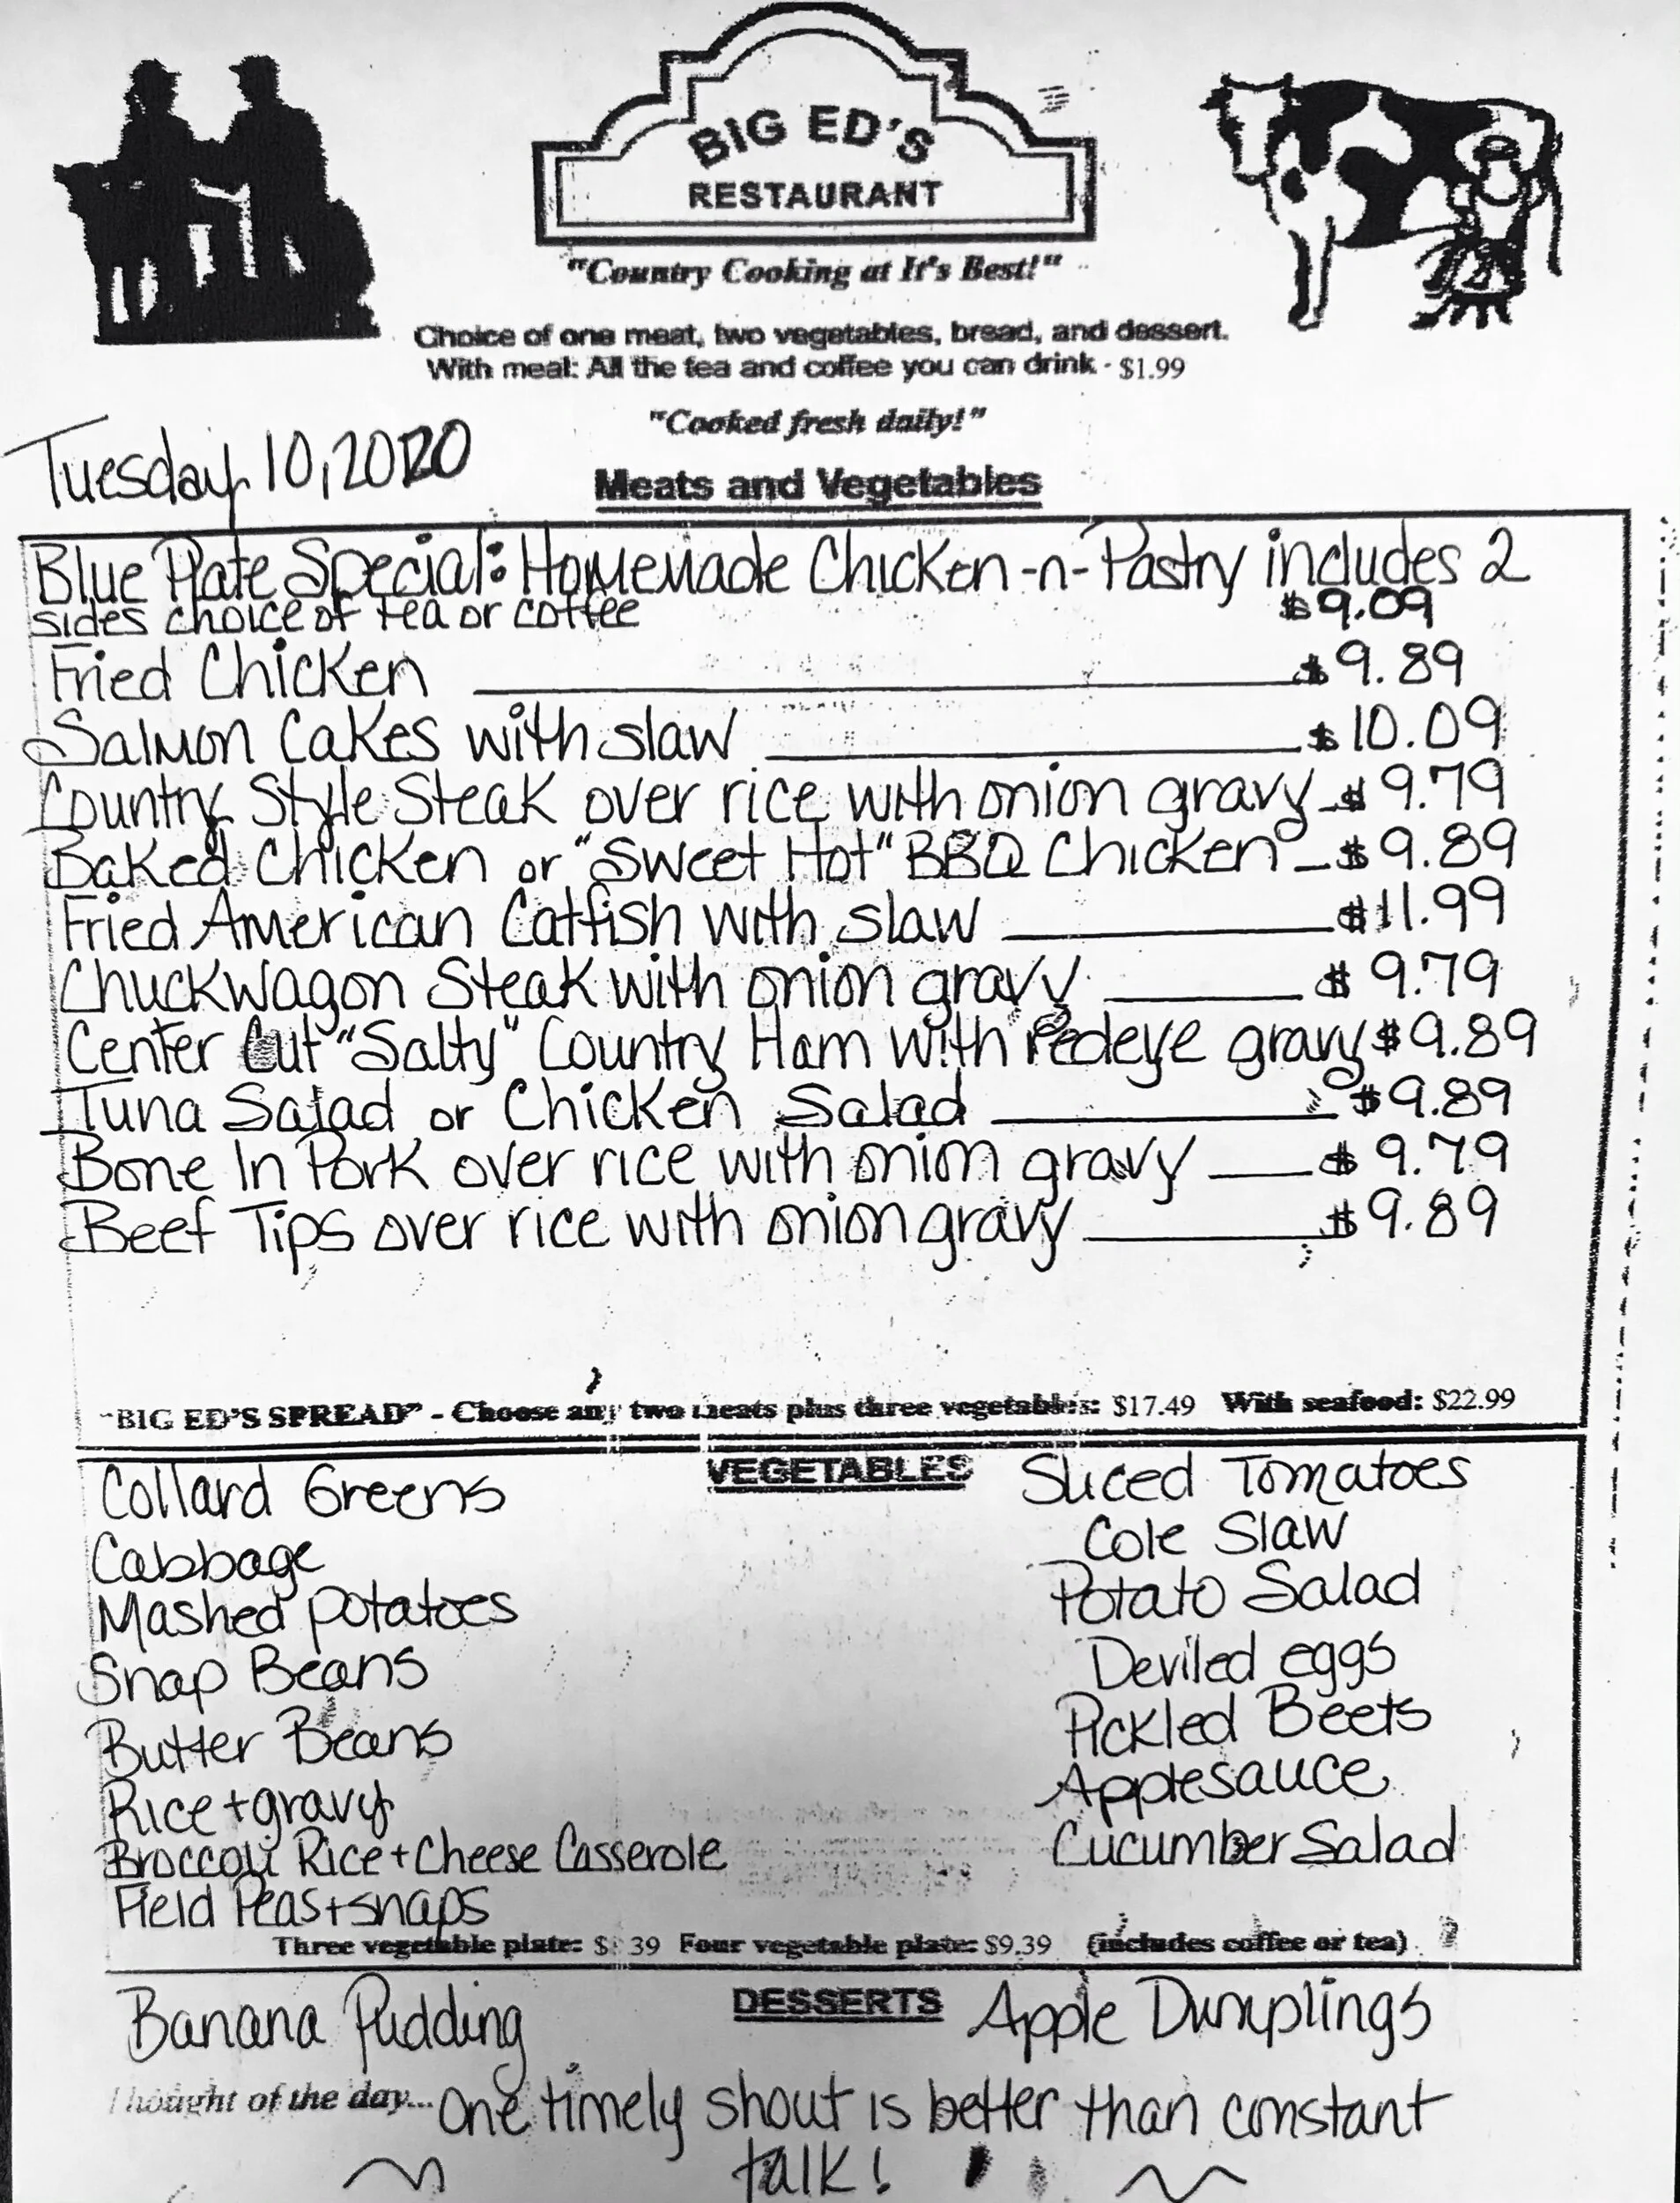 BIG ED'S
RESTAURANT
"Country Cooking at It's Best!"
Choice of one meat, two vegetables, bread, and dessert.
With meal: All the tea and coffee you can drink - $1.99
"Cooked fresh daily!"
Tuesday 10, 2020
Meats and Vegetables
Blue Plate Special: Homemade Chicken -n- Pastry includes 2
sides choice of tea or coffee $9.09
Fried Chicken $9.89
Salmon Cakes with slaw $10.09
Country Style Steak over rice with onion gravy $9.79
Baked Chicken or "Sweet Hot" BBQ Chicken $9.89
Fried American Catfish with slaw $11.99
Chuckwagon Steak with onion gravy $9.79
Center Cut "Salty" Country Ham with redeye gravy $9.89
Tuna Salad or Chicken Salad $9.89
Bone In Pork over rice with onion gravy $9.79
Beef Tips over rice with onion gravy $9.89
"BIG ED'S SPREAD" - Choose any two meats plus three vegetables: $17.49 With seafood: $22.99
VEGETABLES
Collard Greens
Cabbage
Mashed potatoes
Snap Beans
Butter Beans
Rice + gravy
Broccoli Rice + Cheese Casserole
Field Peas + snaps
Sliced Tomatoes
Cole Slaw
Potato Salad
Deviled eggs
Pickled Beets
Applesauce
Cucumber Salad
Three vegetable plate: Four vegetable plate: $9.39 (includes coffee or tea)
DESSERTS
Banana Pudding
Apple Dumplings
Thought of the day... One timely shout is better than constant
talk!